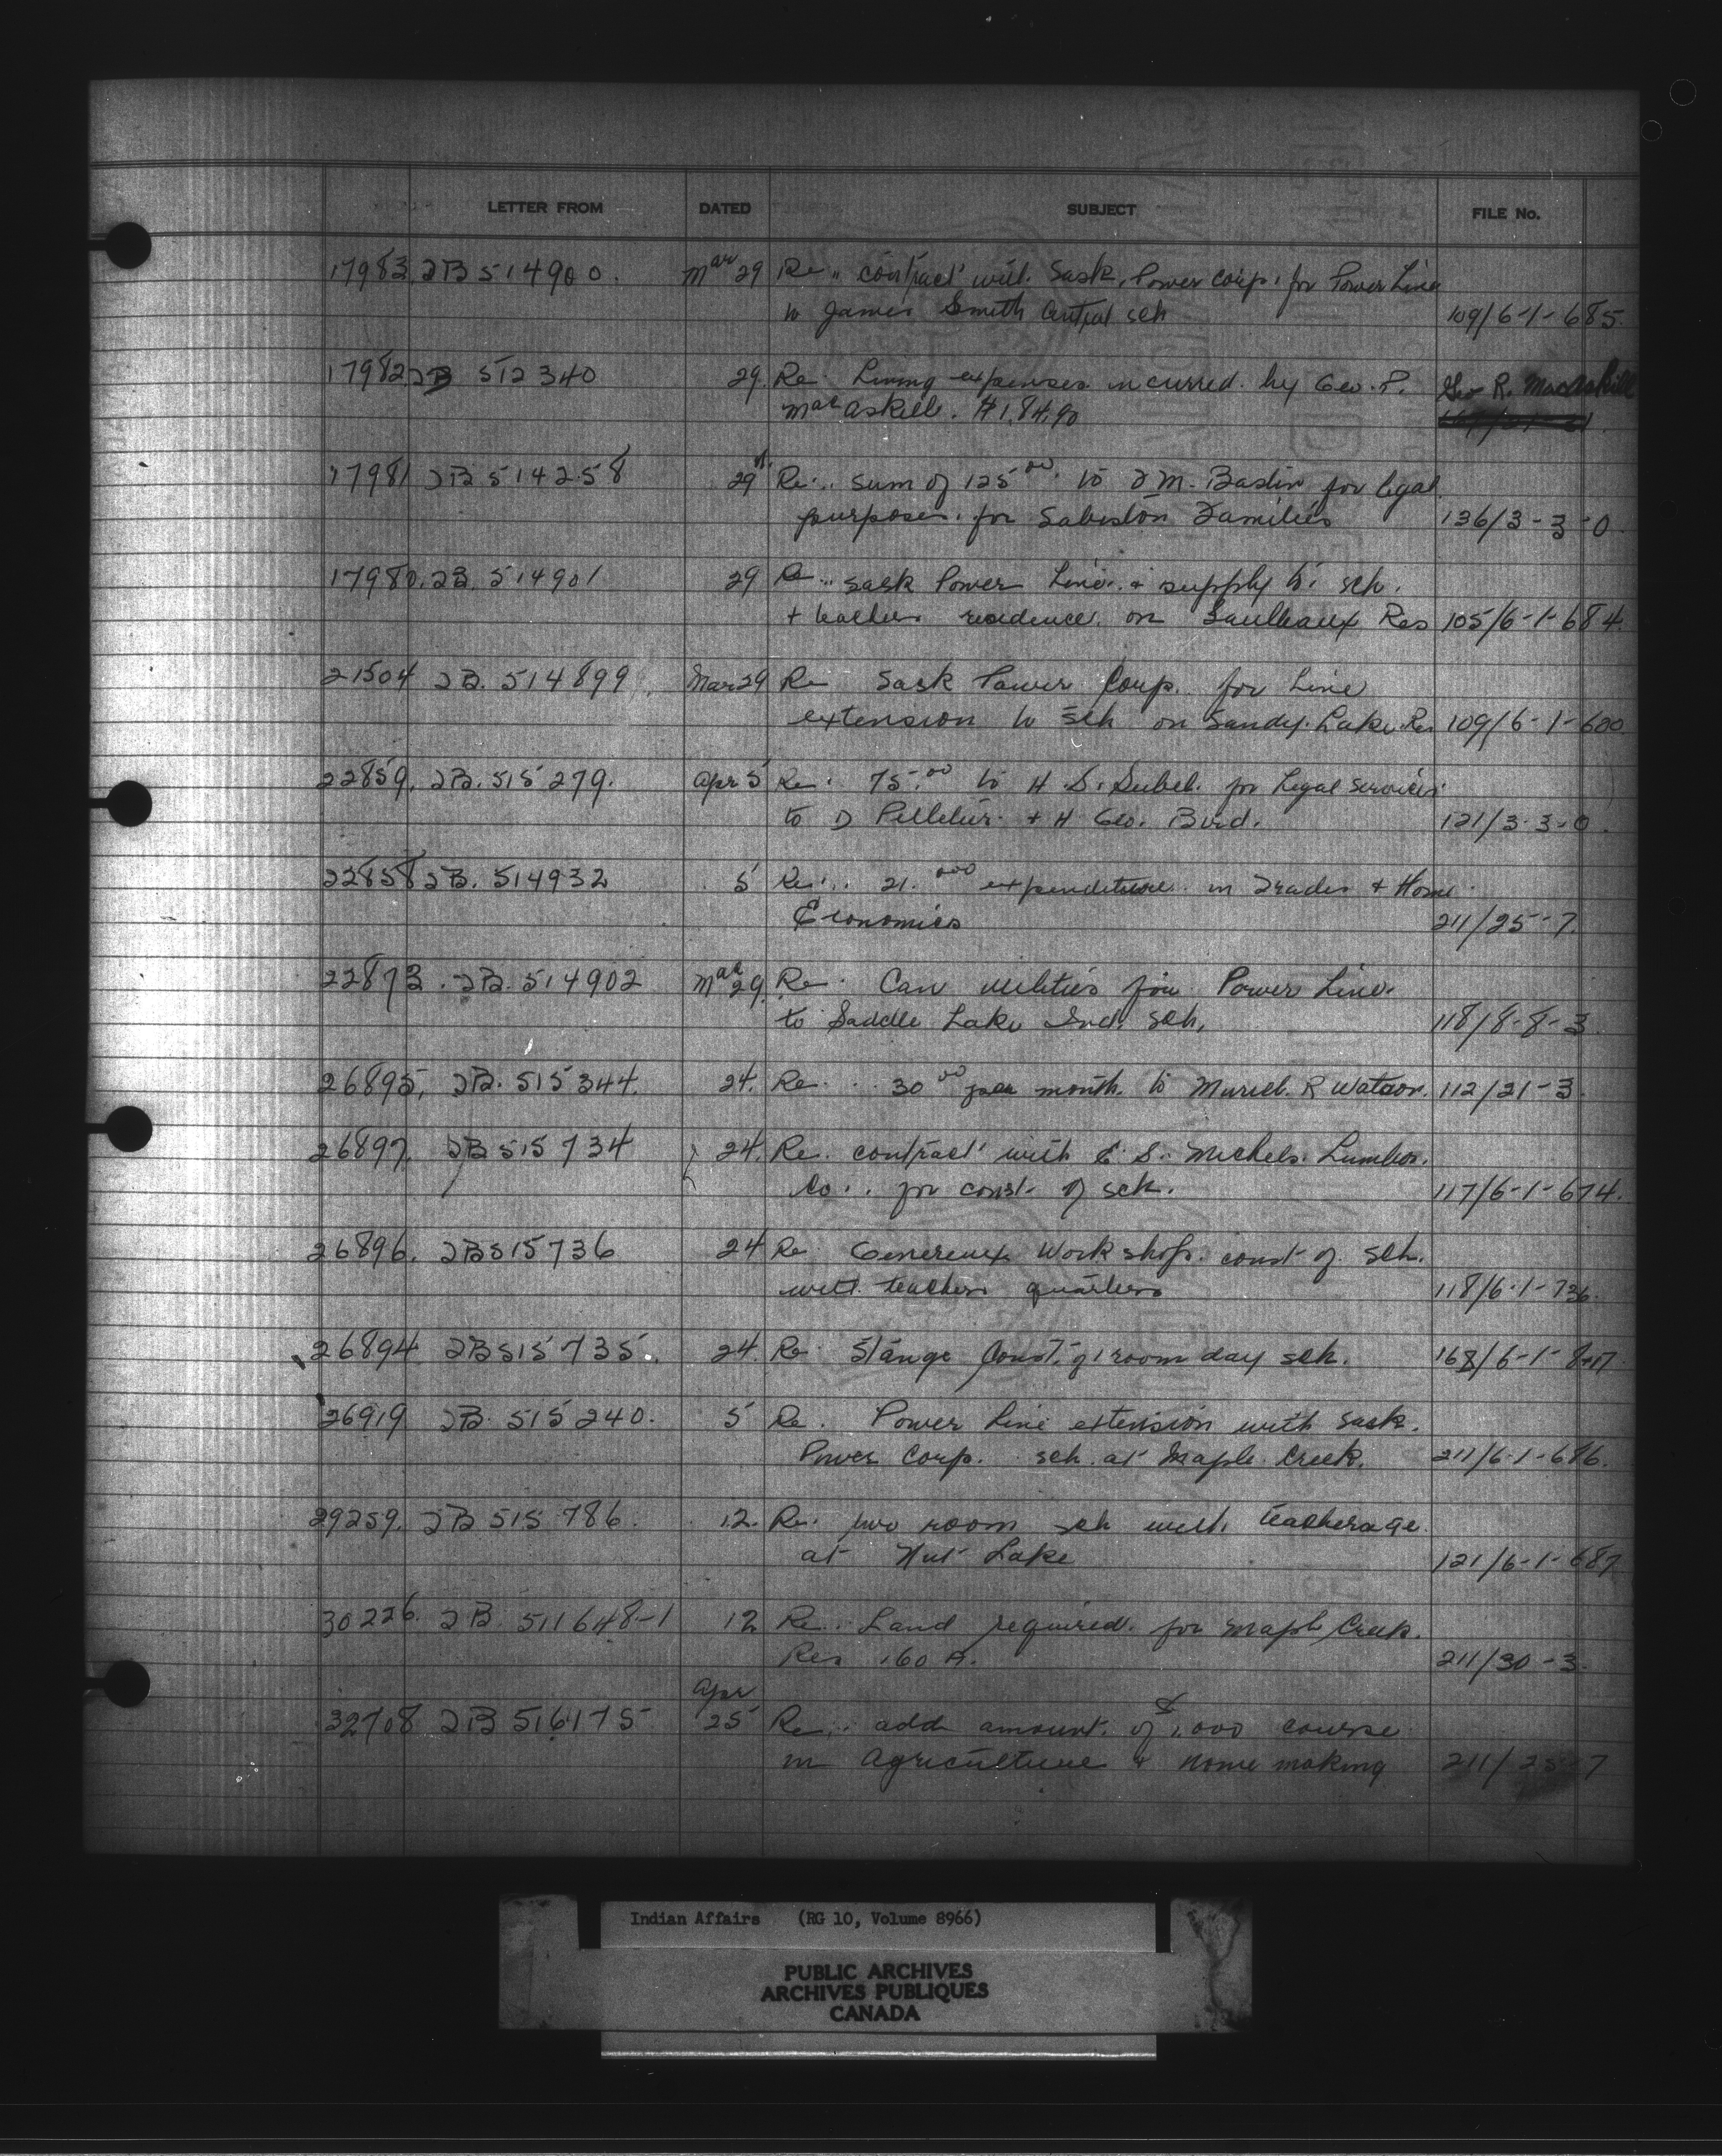 LETTER FROM DATED SUBJECT FILE No.
17983. TB 514900. Mar 29 Re.. contract with Sask. Power Corp. for Power Line
to James Smith Central sch 109/6-1-685.
17982 TB 512340 29. Re. Living expenses incurred by Geo. R. Geo R. MacAskill
MacAskill. $184.90
17981 TB 514258 29 Re... sum of 125.00 to M. Bastin for legal
purposes for Sabiston Families 136/3-3-0.
17980. TB. 514901 29 Re... Sask Power Line. + supply to sch.
+ teachers residence. on Saulteaux Res 105/6-1-684.
21504 TB. 514899 Mar 29 Re Sask Power Corp. for line
extension to sch on Sandy Lake Res 109/6-1-680.
22859. TB. 515279. Apr 5 Re. 75.00 to H. S. for Legal services
to D Pelletier + H Geo. Bird. 121/3-3-0.
22858 TB. 514932 5 Re... 21.000 expenditure in Trades + Home
Economics 211/25-7.
22873. TB. 514902 Mar 29. Re. Can utilities for Power Line.
to Saddle Lake Ind. sch. 118/8-8-3
26895. TB. 515344. 24. Re... 30.00 per month to Muriel R Watson. 112/21-3.
26897. TB 515734 24. Re. contract with E. S. Michels Lumber.
Co.. for const. of sch. 117/6-1-674.
26896. TB 515736 24 Re Genereux Workshop. const of. sch.
with teachers quarters 118/6-1-736.
26894 TB 515735. 24. Re. Stange Const. of 1 room day sch. 168/6-1-
26919 TB. 515240. 5 Re. Power Line extension with Sask.
Power Corp. sch. at Maple Creek. 211/6-1-686.
29259. TB 515786. 12. Re. two room sch with teacherage.
at Nut Lake 121/6-1-687
30226. TB. 511648-1 12 Re.. Land required. for Maple Creek.
Res 160 A. 211/30-3.
Apr
32708 TB 516175 25 Re... add amount. of $1,000 course
in Agriculture & Home making 211/25-7
Indian Affairs (RG 10, Volume 8966)
PUBLIC ARCHIVES
ARCHIVES PUBLIQUES
CANADA